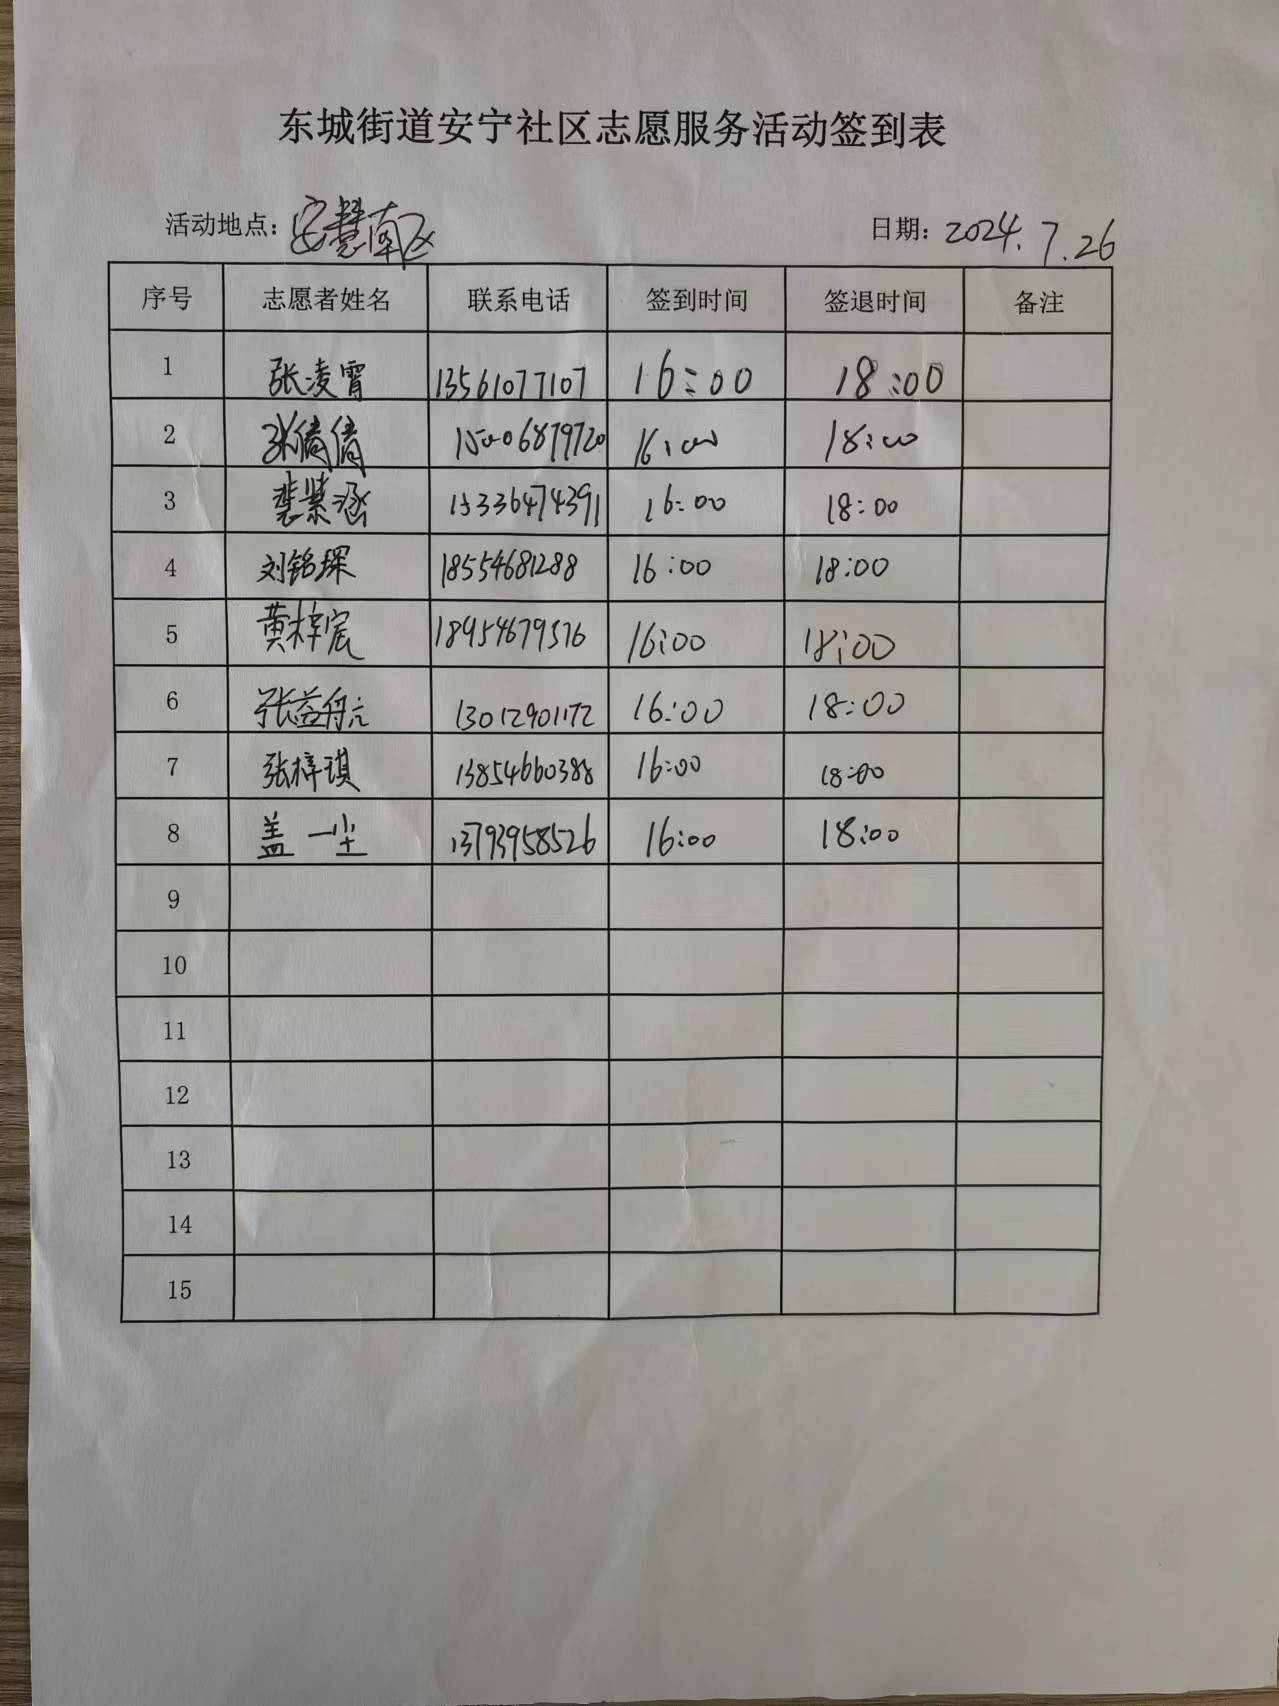 东城街道安宁社区志愿服务活动签到表
活动地点：安慧南区 日期：2024.7.26
序号 志愿者姓名 联系电话 签到时间 签退时间 备注
1 张凌霄 13561077107 16:00 18:00
2 张倩倩 15006879720 16:00 18:00
3 裴紫涵 15336474391 16:00 18:00
4 刘铭琛 18554681288 16:00 18:00
5 黄梓宸 18954679576 16:00 18:00
6 张益舟 13012901172 16:00 18:00
7 张梓琪 13854660388 16:00 18:00
8 盖一尘 13793958526 16:00 18:00
9
10
11
12
13
14
15